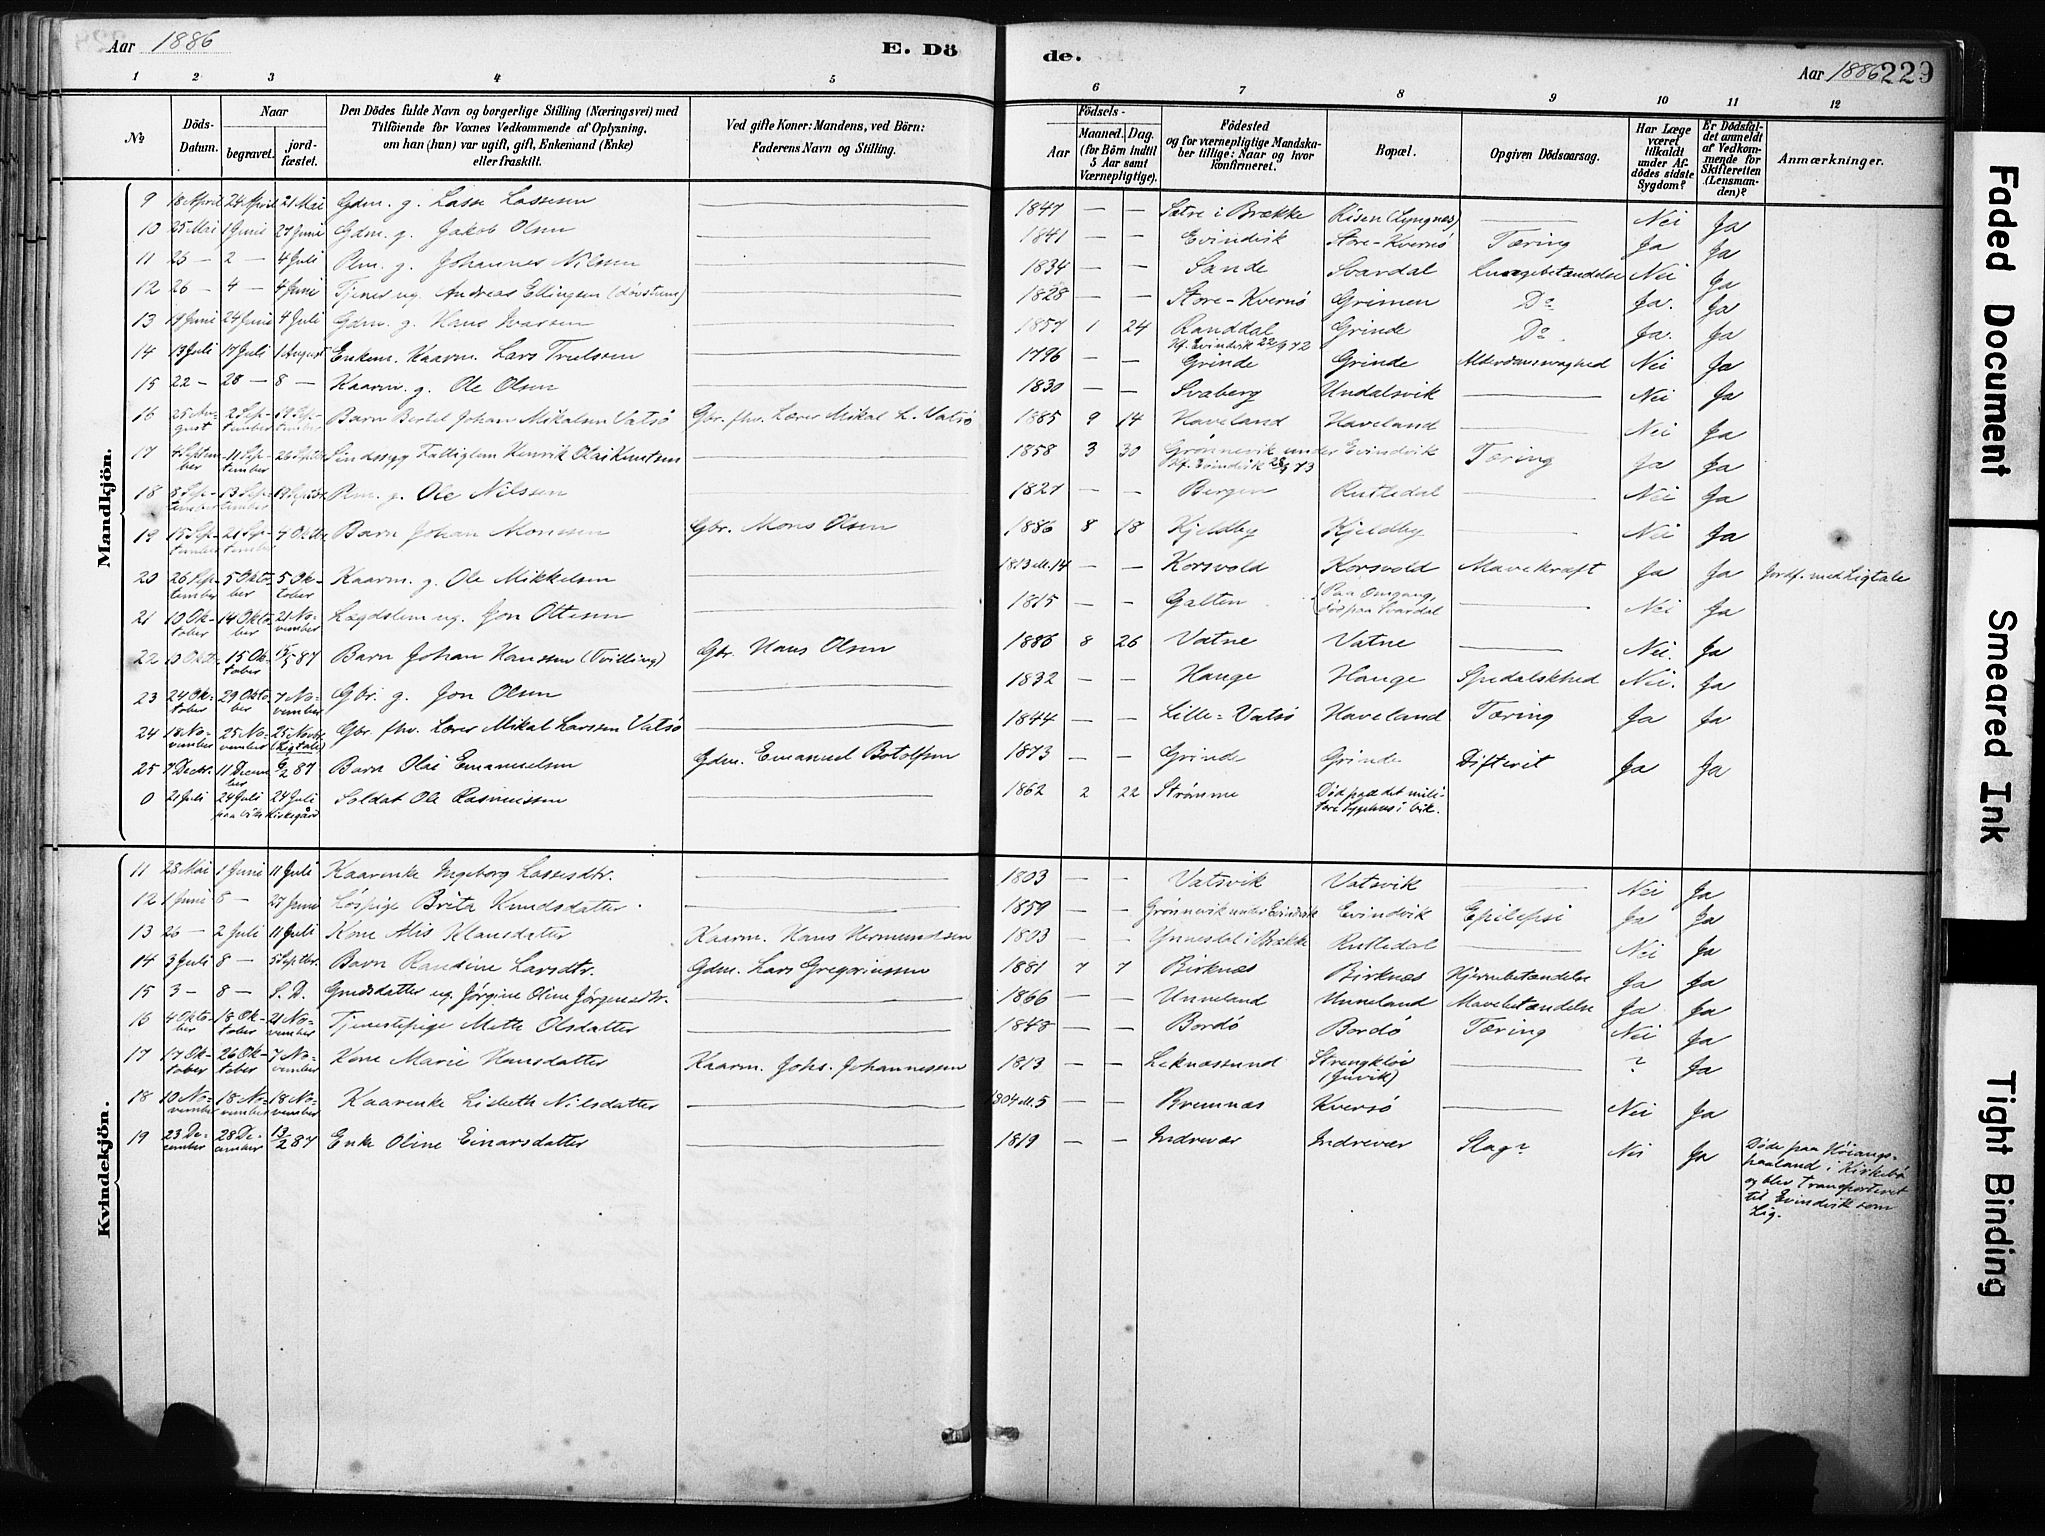 Aar 1886
E. Dö
de.
Aar 1886
229
1 2 3 4 5
6 7 8 9 10 11 12
№
Döds-Datum.
Naar
begravet.
jord-fæstet.
Den Dödes fulde Navn og borgerlige Stilling (Næringsvei) med
Tilföiende for Voxnes Vedkommende af Oplysning,
om han (hun) var ugift, gift, Enkemand (Enke)
eller fraskilt.
Ved gifte Koner: Mandens, ved Börn:
Faderens Navn og Stilling.
Födsels-
Aar
Maaned. Dag.
(for Börn indtil
5 Aar samt
Værnepligtige).
Födested
og for værnepligtige Mandska-
ber tillige: Naar og hvor
konfirmeret.
Bopæl.
Opgiven Dödsaarsag.
Har Læge
været
tilkaldt
under Af-
dödes sidste
Sygdom?
Er Dödsfal-
det anmeldt
af Vedkom-
mende for
Skifteretten
(Lensman-
den)?
Anmærkninger.
Mandkjön.
9 18 April 24 April 21 Mai Gdm. g. Lasse Lassesen 1847 — — Sætre i Brække Risen (Lyngnes) Nei Ja
10 25 Mai 1 Juni 27 Juni Gdm. g. Jakob Olsen 1841 — — Evindvik Store-Kversö Tæring Ja Ja
11 25 — 2 — 4 Juli Plm. g. Johannes Nilssen 1834 — — Sande Svardal Lungebetændelse Nei Ja
12 26 — 4 — 4 Juni Tjener ug. Andreas Ellingsen (dövstum) 1828 — — Store-Kversö Grimen Do Ja. Ja
13 19 Juni 24 Juni 4 Juli Gdm. g. Hans 1857 1 24 Randdal Grinde Do Ja. Ja
Kf. Evindvik 22/9 72
14 13 Juli 17 Juli 1 August Enkem. Kaarm. Lars Trulssen 1796 — — Grinde Grinde Alderdomssvaghed Nei Ja
15 22 — 28 — 8 — Kaarm. g. Ole Olsen 1830 — — Svaberg Undalsvik Nei Ja
16 25 August 2 September 19 September Barn Bertel Johan Mikalsen Vatsö Gbr. fhv. Lærer Mikal L. Vatsö 1885 9 14 Haveland Haveland Nei Ja
17 4 September 11 September 26 Septbr Sindssyg Fattiglem Henrik Olai Knutsen 1858 3 30 Grønnevik under Evindvik Tæring Ja Ja
18 8 September 13 September 19 Septbr. Plm. g. Ole Nilssen 1827 — — Bergen Rutledal Nei Ja
19 15 September 21 September 4 Oktbr Barn Johan Monssen Gbr. Mons Olsen 1886 8 18 Kjeldby Kjeldby Nei Ja
20 26 September 5 Oktober 5 Oktober Kaarm. g. Ole Mikkelsen 1813 ell. 14 — — Korsvold Korsvold Mavekræft Ja Ja Jordf. med Ligtale
21 10 Oktober 14 Oktober 21 November Lægdslem ug. Jon Ottesen 1815 — — Galten (Paa Omgang, död paa Svardal Nei Ja
22 10 Oktbr 15 Oktober /5 87 Barn Johan Hanssen (Tvilling) Gbr. Hans Olsen 1886 8 26 Vatne Vatne Nei. Ja
23 24 Oktober 29 Oktober 7 November Gbr. g. Jon Olsen 1832 — — Hauge Hauge Spedalskhed Nei. Ja
24 18 November 25 November 25 Novbr (Ligtale) Gbr. fhv. Lærer Mikal Larssen Vatsö 1844 — — Lille-Vatsö Haveland Tæring Ja Ja
25 7 Decbr. 11 December 6/2 87 Barn Olai Emanuelsen Gdm. Emanuel Botolfsen 1873 — — Grinde Grinde Difterit Ja Ja
0 21 Juli 24 Juli 24 Juli Soldat Ole Rasmussen 1862 2 22 Strømme Död paa det militære Sygehus i Vik.
Kvindekjön.
11 28 Mai 1 Juni 11 Juli Kaarenke Ingeborg Lassesdtr. 1803 — — Vatsvik Vatsvik Nei Ja
12 1 Juni 8 — 27 Juni Löspige Brita Knudsdatter 1859 — — Grönnevik under Evindvik Evindvik Epilepsi Ja Ja
13 26 — 2 Juli 11 Juli Kone Alis Klausdatter Kaarm. Hans Hermundssen 1803 — — Ynnesdal i Brække Rutledal Nei Ja
14 3 Juli 8 — 5 Septbr. Barn Randine Larsdtr. Gdm. Lars Gregoriussen 1881 7 7 Birknæs Birknæs Hjernebetændelse Ja Ja
15 3 — 8 — S. D. Gmdsdatter ug. Jörgine Oline Jörgensdtr. 1866 — — Unneland Unneland Mavebetændelse Ja Ja
16 4 Oktober 18 Oktober 21 November Tjenestepige Mette Olsdatter 1848 — — Bordö Bordö Tæring Nei Ja
17 17 Oktober 26 Oktober 7 November Kone Marie Hansdatter Kaarm. Johs. Johannessen 1813 — — Leknæssund (Juvik) ? Ja
18 10 November 18 November 18 November Kaarenke Lisbeth Nilsdatter 1804 ell. 5 — — Bremnæs Kversö Nei Ja
19 23 December 28 December 13/2 87 Enke Oline Einarsdatter 1819 — — Indrevær Indrevær Slag? Nei Ja Döde paa
i Kirkebö
og blev transporteret
til Evindvik som
Lig.
Faded Document
Smeared Ink
Tight Binding